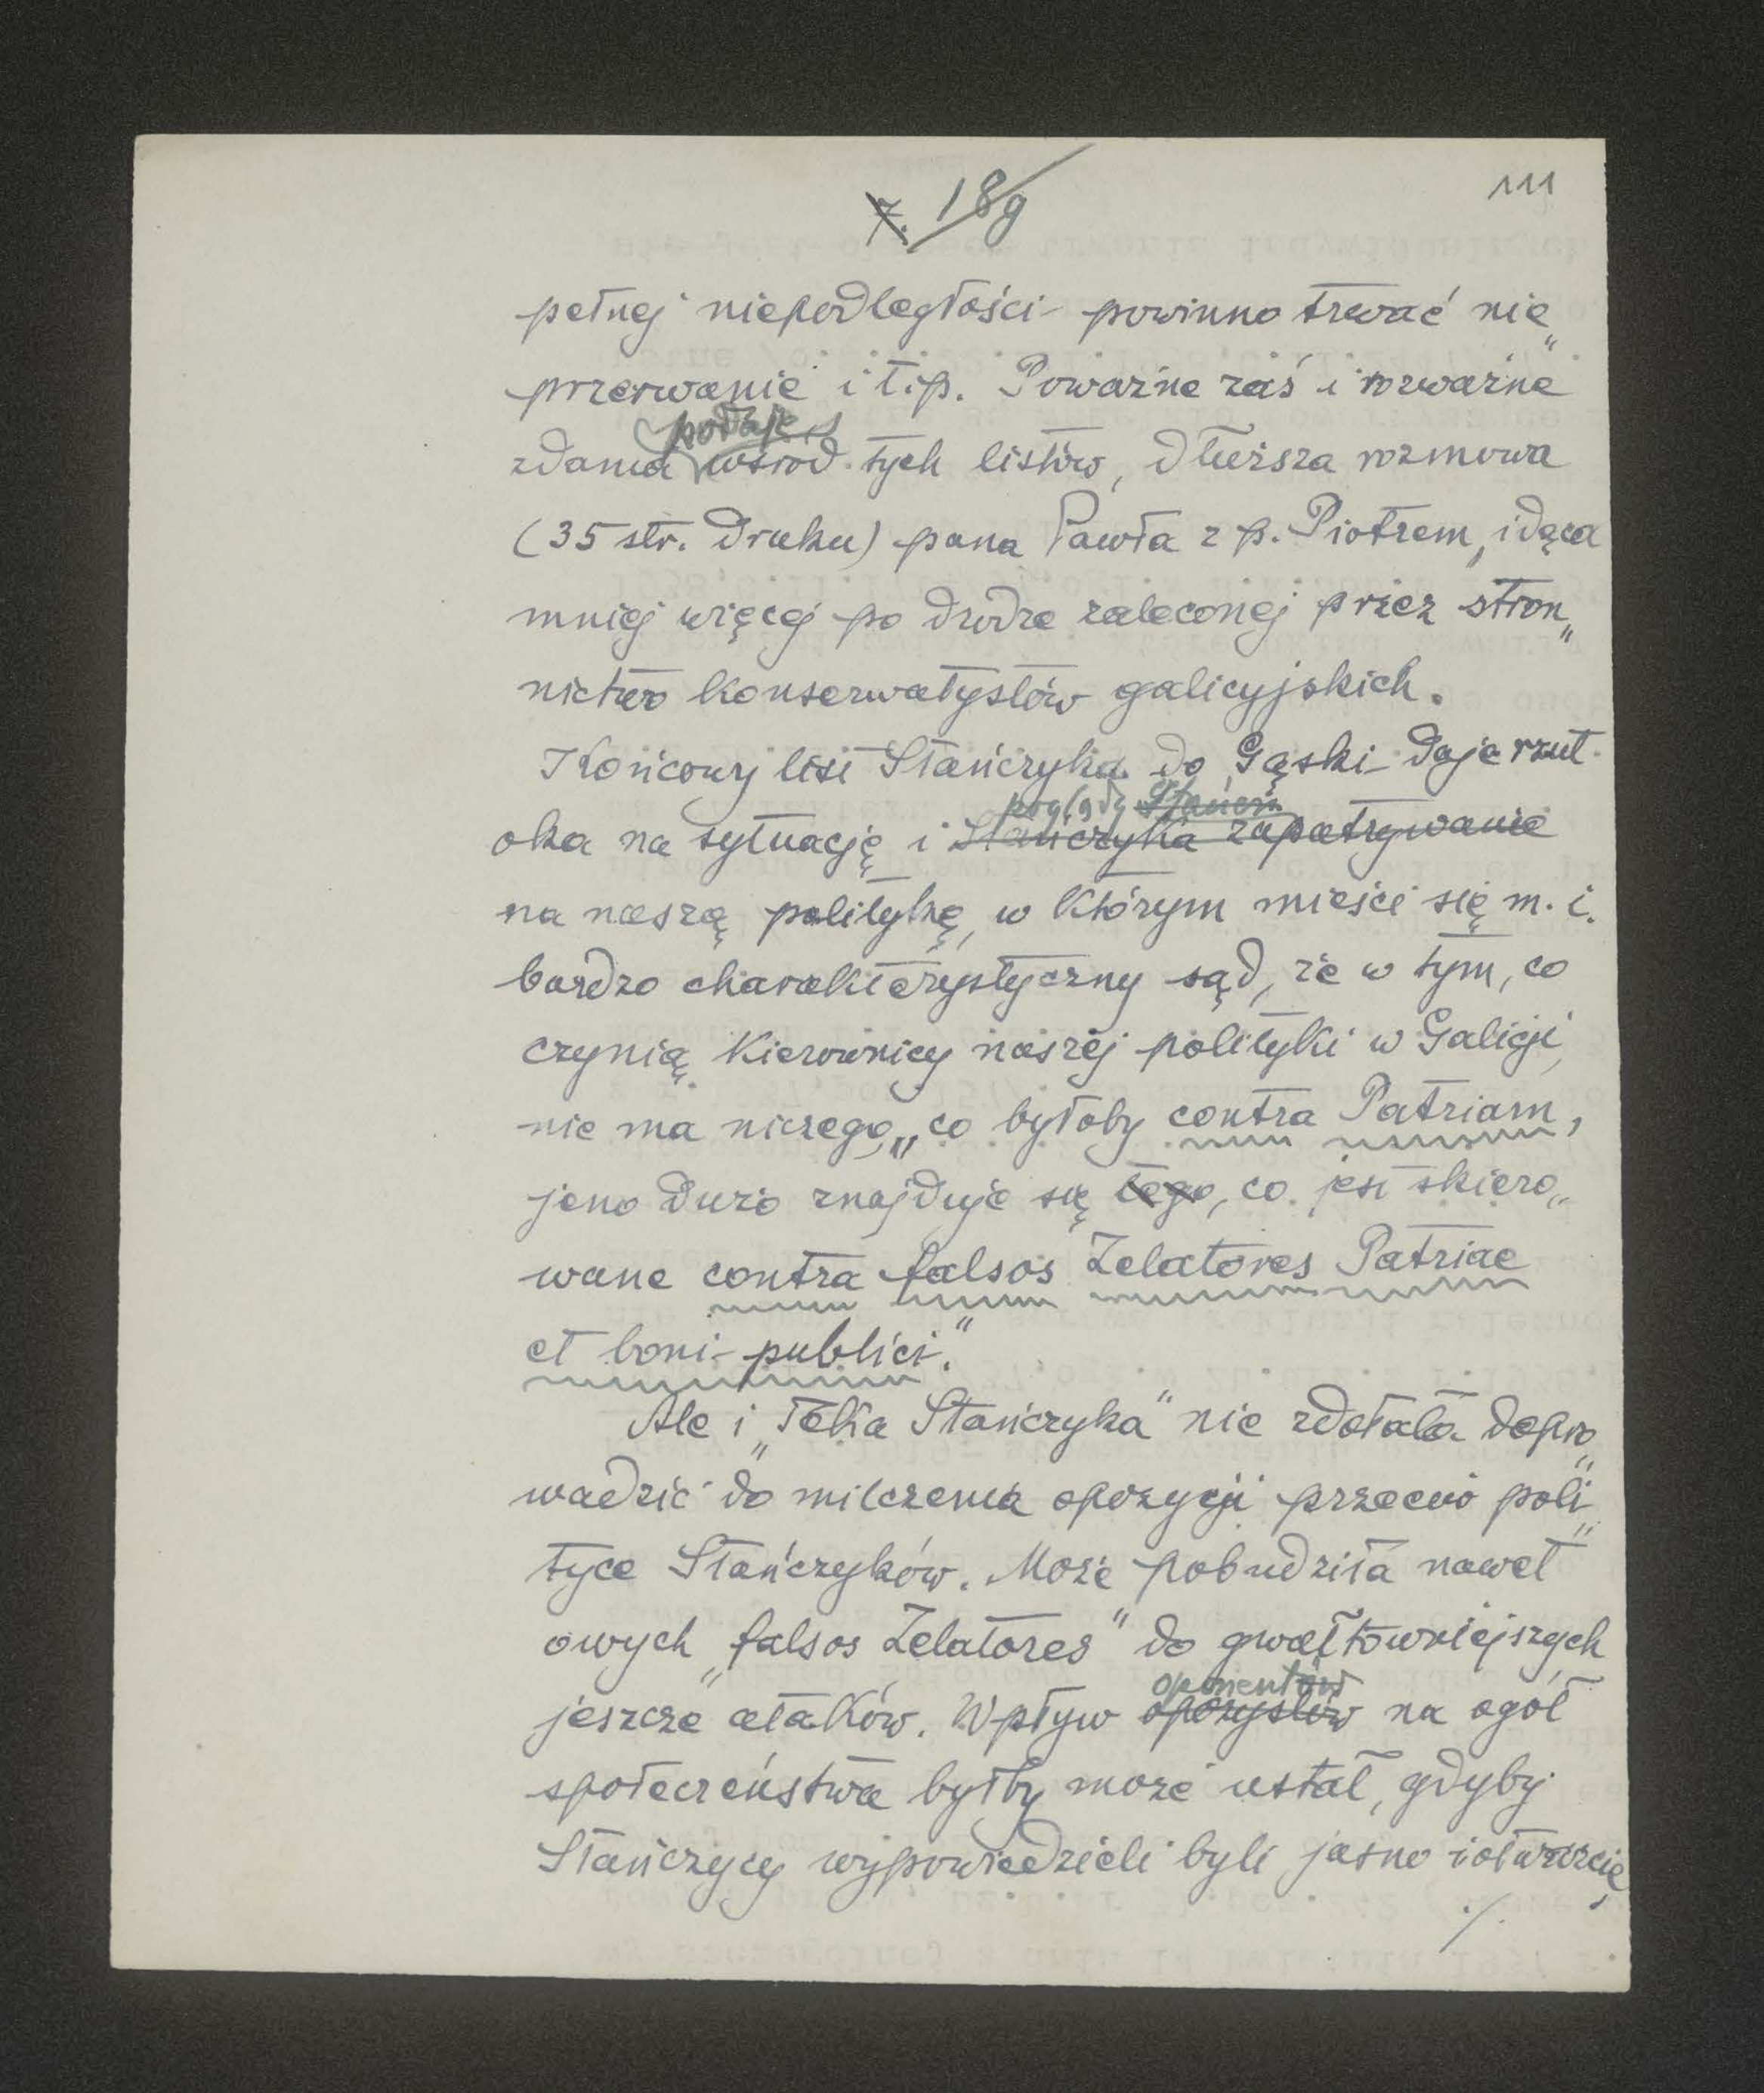 7. 189
111
pełnej niepodległości powinno trwać nie„
przerwanie i t.p. Poważne zaś i rozważne
podaje
zdania wśród tych listów, dłuższa rozmowa
(35 str. druku) pana Pawła z p. Piotrem, idąca
mniej więcej po drodze zaleconej przez stron„
nictwo konserwatystów galicyjskich.
Końcowy list Stańczyka do Gąski daje rzut
poglądy Stańcz.
oka na sytuację i Stańczyka zapatrywanie
na naszą politykę, w którym mieści się m. i.
bardzo charakterystyczny sąd, że w tym, co
czynią kierownicy naszej polityki w Galicji,
nie ma niczego, „co byłoby contra Patriam,
jeno dużo znajduje się tego, co jest skiero„
wane contra falsos Zelatores Patriae
et boni publici."
Ale i „Teka Stańczyka" nie zdołała dopro„
wadzić do milczenia opozycji przeciw poli„
tyce Stańczyków. Może pobudziła nawet
owych „falsos Zelatores" do gwałtowniejszych
oponentów
jeszcze ataków. Wpływ opozystów na ogół
społeczeństwa byłby może ustał, gdyby
Stańczycy wypowiedzieli byli jasno i otwarcie,
./.